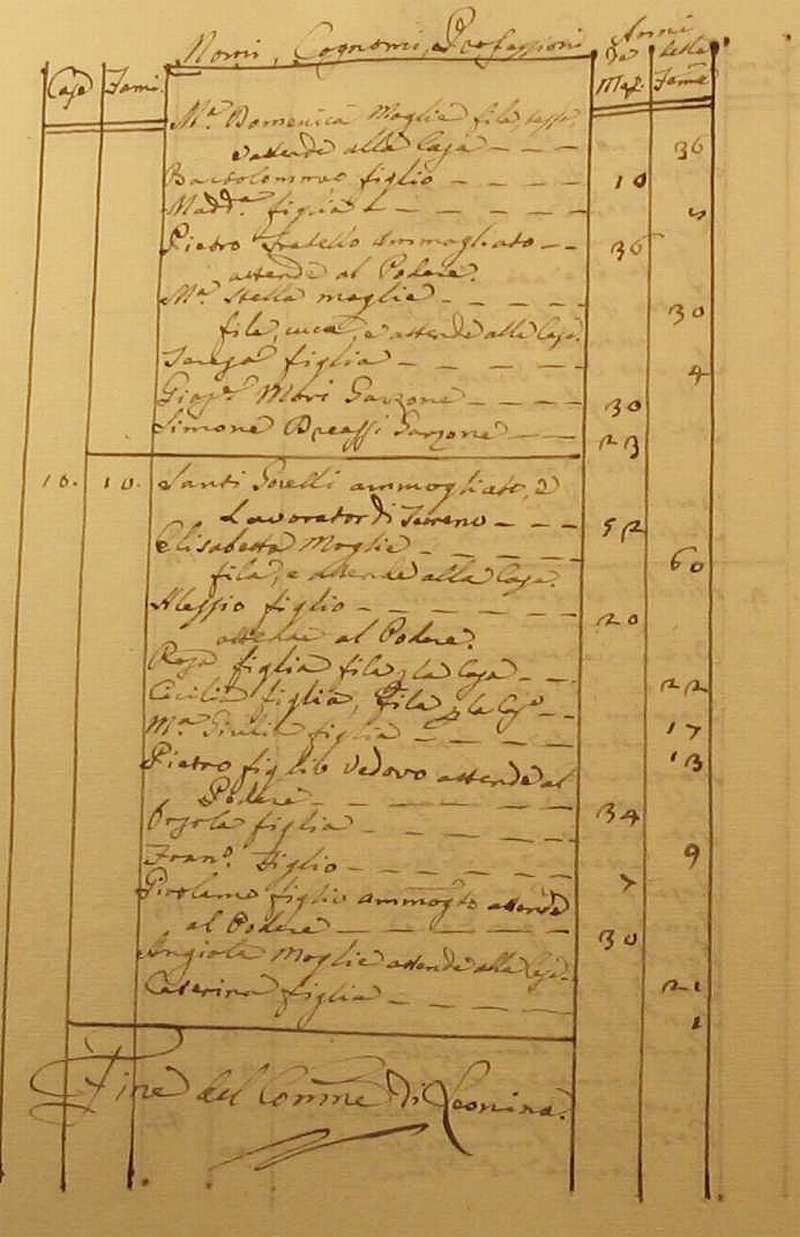 Nomi, Cognomi, e Professioni Anni
Case Fami. De Mas. delle Feme
M.a Domenica Moglie fila, tesse,
e attende alla Casa - - - 36
Bartolommeo figlio - - - - 10
Madd.a figlia - - - - -
Pietro Fratello Ammogliato - - 36
attende al Podere.
M.a Stella moglie - - - - - 30
fila, cuce, e attende alla Casa.
Teresa figlia - - - - - 4
Gios.e Mori Garzone - - - - 30
Simone Garzone - - 23
16. 10. Santi Gorelli ammogliato, e
Lavorator di Terreno - - - 52
Elisabetta Moglie - - - - 60
fila, e attende alla Casa.
Alessio figlio - - - - - 20
attende al Podere.
Rosa figlia fila, la Casa - - 22
Cecilia figlia, fila la Casa - - 17
M.a Giulia figlia - - - - 13
Pietro figlio Vedovo attende al
Podere - - - - - 34
Orsola figlia - - - - - 9
Fran.o Figlio - - - - - 7
Girolamo figlio ammog.to attende
al Podere - - - - - 30
Angiola Moglie attende alla Casa - 21
Caterina figlia - - - - 1
Fine del Comune di Leonina.